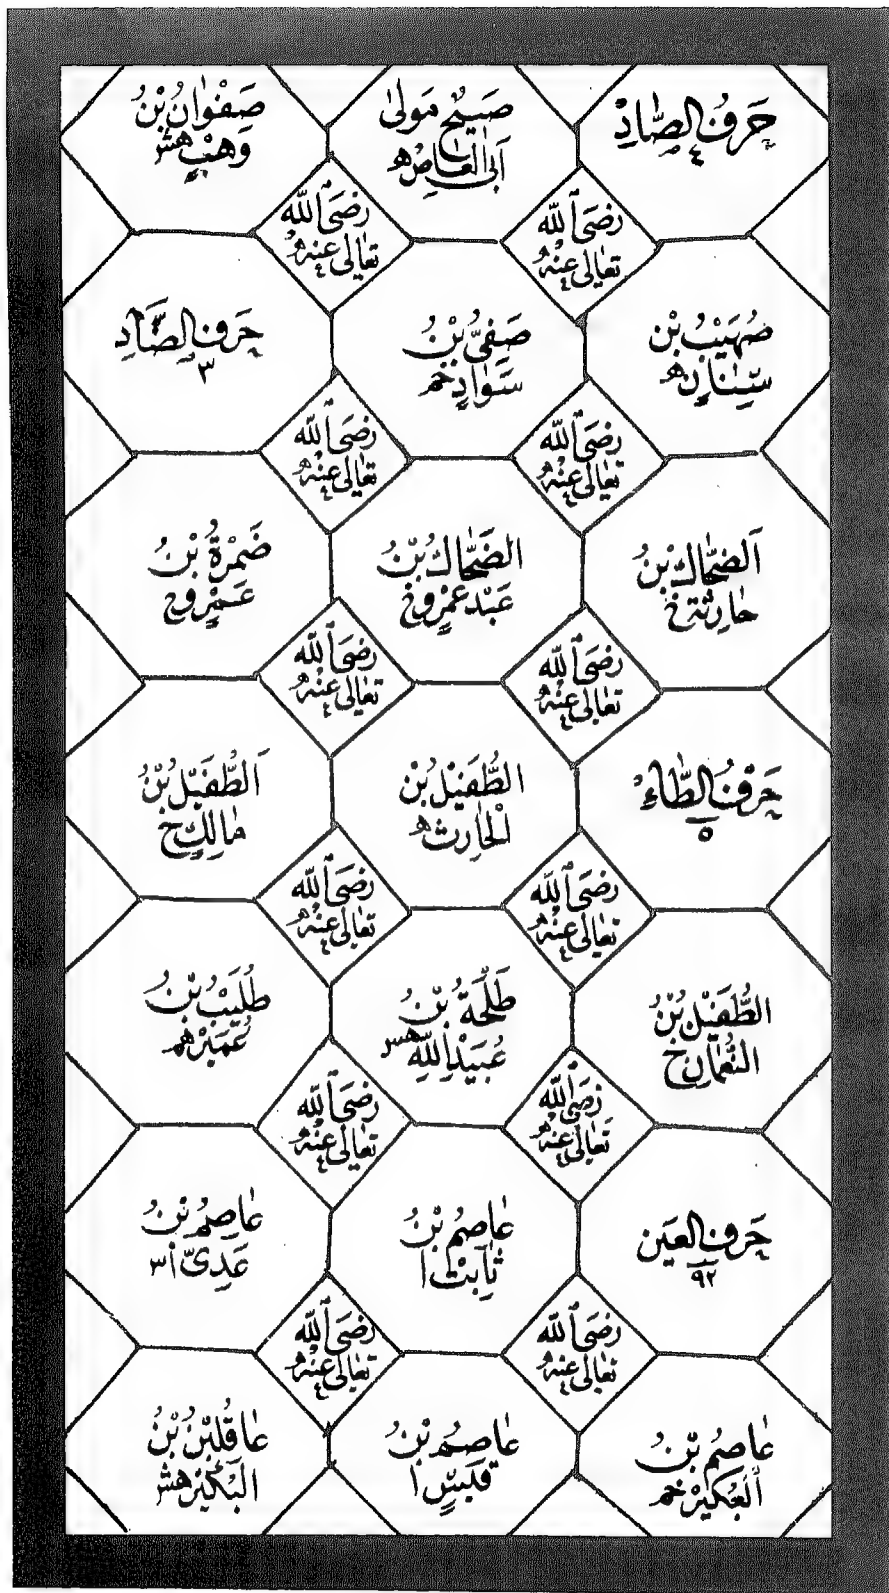 حَرْفُ الصَّادِ
٤
صَبِيْحٌ مَولٰى
اَبِى الْعَاصْ ھ
صَفْوَانُ بْنُ
وَهْبٍ ھش
رَضِىَ اللّٰه
تَعَالٰى عَنْهُ
رَضِىَ اللّٰه
تَعَالٰى عَنْهُ
صُهَيْبُ بْنُ
سِنَانٍ ھ
صَفِىُّ بْنُ
سَوَادٍ خم
حَرْفُ الضَّادِ
٣
رَضِىَ اللّٰه
تَعَالٰى عَنْهُ
رَضِىَ اللّٰه
تَعَالٰى عَنْهُ
اَلضَّحَّاكُ بْنُ
حَارِثَةَ خ
الضَّحَّاكُ بْنُ
عَبْدِ عَمْرٍو خ
ضَمْرَةُ بْنُ
عَمْرٍو خ
رَضِىَ اللّٰه
تَعَالٰى عَنْهُ
رَضِىَ اللّٰه
تَعَالٰى عَنْهُ
حَرْفُ الطَّاءِ
٥
الطُّفَيْلُ بْنُ
الْحَارِثِ ھ
اَلطُّفَيْلُ بْنُ
مَالِكٍ خ
رَضِىَ اللّٰه
تَعَالٰى عَنْهُ
رَضِىَ اللّٰه
تَعَالٰى عَنْهُ
الطُّفَيْلُ بْنُ
النُّعْمَانِ خ
طَلْحَةُ بْنُ
عُبَيْدِ اللّٰهِ ھس
طُلَيْبُ بْنُ
عُمَيْرٍ ھم
رَضِىَ اللّٰه
تَعَالٰى عَنْهُ
رَضِىَ اللّٰه
تَعَالٰى عَنْهُ
حَرْفُ الْعَيْن
٩٢
عَاصِمُ بْنُ
ثَابِتْ ا
عَاصِمُ بْنُ
عَدِىّ ا٣
رَضِىَ اللّٰه
تَعَالٰى عَنْهُ
رَضِىَ اللّٰه
تَعَالٰى عَنْهُ
عَاصِمُ بْنُ
الْعُكَيْرْ خم
عَاصِمُ بْنُ
قَيْسٍ ا
عَاقِلُ بْنُ
الْبُكَيْرْ ھش